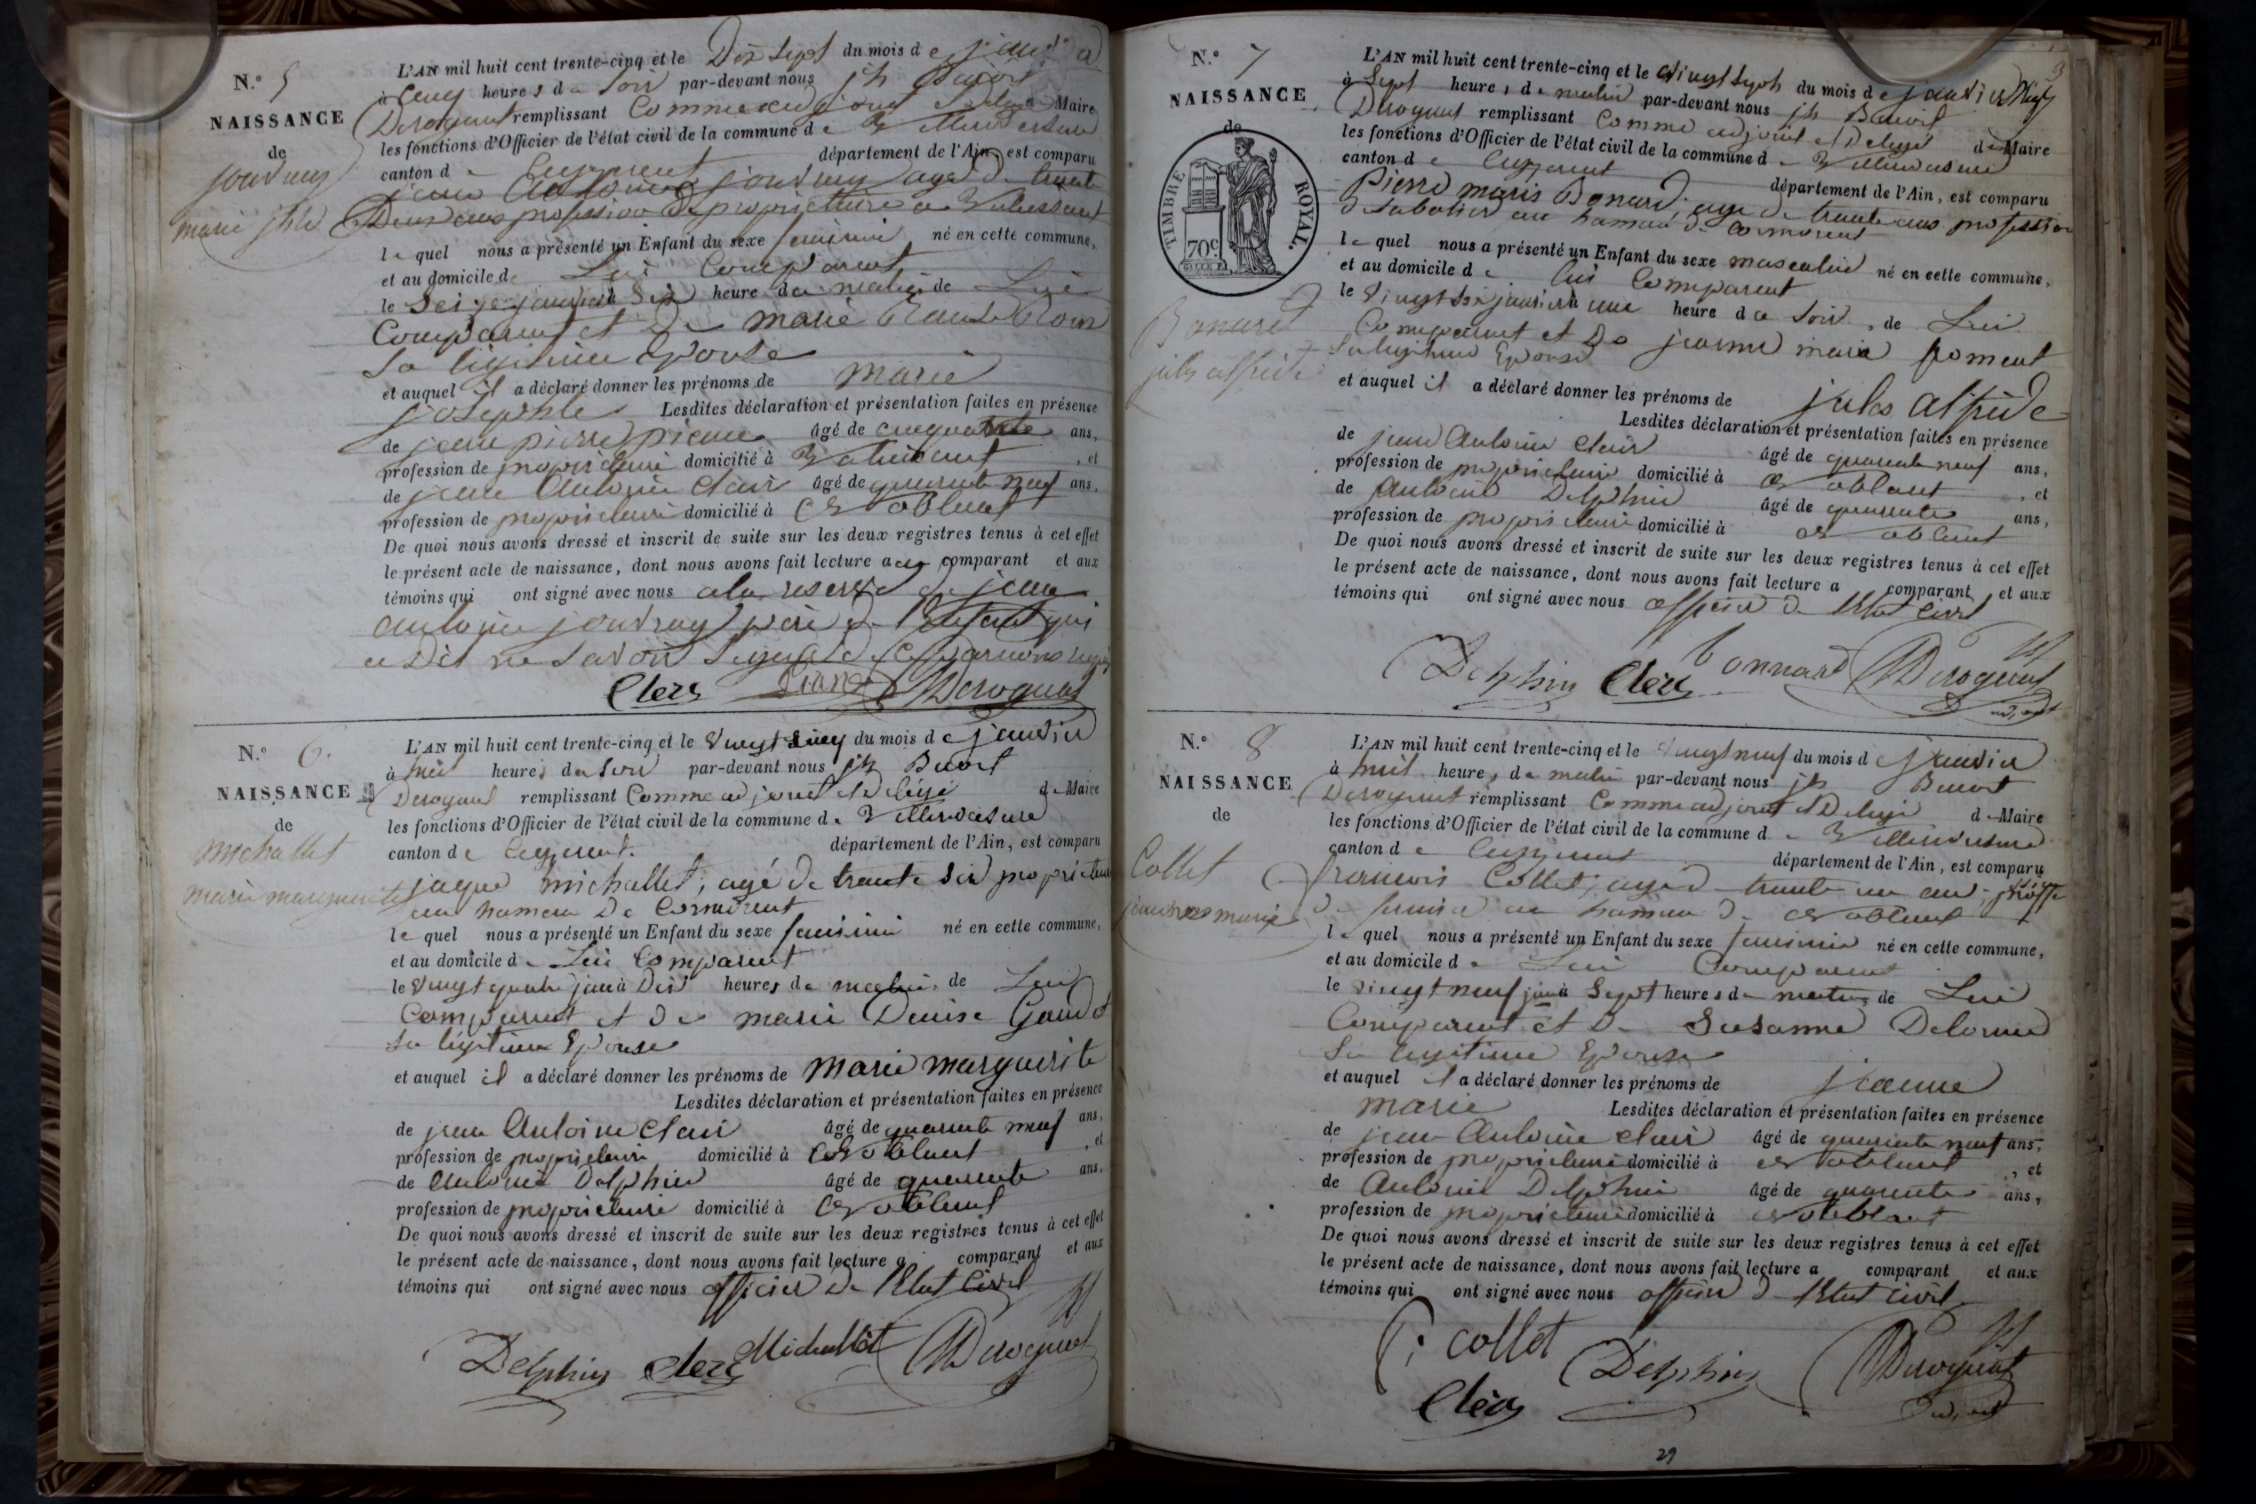 N.º 5
NAISSANCE
de
jouvray
marie jphte
L'AN mil huit cent trente-cinq et le Dix Sept du mois de janvier
à cinq heures du Soir par-devant nous jh Benoit
Deroguat remplissant Comme adjoint Delegué de Maire
les fonctions d'Officier de l'état civil de la commune de Villereversure
canton de Ceyzeriat département de l'Ain, est comparu
jean Antoine jouvray agé de trente
Deux ans profession de proprietaire a
lequel nous a présenté un Enfant du sexe feminin né en cette commune,
et au domicile de Lui Comparant
le Seize janvier à Six heure du matin de Lui
Comparant et De marie
Sa légitime Epouse
et auquel il a déclaré donner les prénoms de marie
josephte Lesdites déclaration et présentation faites en présence
de jean pierre âgé de cinquante ans,
profession de proprietaire domicilié à , et
de jean Antoine Clair âgé de quarante neuf ans,
profession de proprietaire domicilié à
De quoi nous avons dressé et inscrit de suite sur les deux registres tenus à cet effet
le présent acte de naissance, dont nous avons fait lecture au comparant et aux
témoins qui ont signé avec nous a la reserve de jean
antoine jouvray père de l'Enfant qui
a Dit ne Savoir Signer de ce par nous requis
Clerc Deroguat
N.º 6.
NAISSANCE
de
michallet
marie marguerite
L'AN mil huit cent trente-cinq et le vingt cinq du mois de janvier
à huit heures du Soir par-devant nous jh Benoit
Deroguat remplissant Comme adjoint Delégué de Maire
les fonctions d'Officier de l'état civil de la commune de Villereversure
canton de Ceyzeriat. département de l'Ain, est comparu
jaque michallet, agé de trente Six proprietaire
au hameau De Cormorent
lequel nous a présenté un Enfant du sexe feminin né en cette commune,
et au domicile de Lui Comparant
le vingt quatre janv à Dix heures du matin, de Lui
Comparant et De marie Denise Gaudet
Sa légitime Epouse
et auquel il a déclaré donner les prénoms de marie marguerite
Lesdites déclaration et présentation faites en présence
de jean Antoine Clair âgé de quarante neuf ans,
profession de proprietaire domicilié à , et
de Antoine Delphin âgé de quarante ans,
profession de proprietaire domicilié à
De quoi nous avons dressé et inscrit de suite sur les deux registres tenus à cet effet
le présent acte de naissance, dont nous avons fait lecture a comparant et aux
témoins qui ont signé avec nous officier de l'Etat Civil
Delphin Clerc Michallet Deroguat
N.º 7
NAISSANCE
de
TIMBRE ROYAL.
70 c.
Bonard
jules alfrède
3
L'AN mil huit cent trente-cinq et le vingt Sept du mois de janvier
à Sept heures du matin par-devant nous jh Benoit
Deroguat remplissant Comme adjoint et Delegué de Maire
les fonctions d'Officier de l'état civil de la commune de Villereversure
canton de Ceyzeriat département de l'Ain, est comparu
Pierre marie Bonard, agé de trente ans profession
de Sabotier au hameau de Cormorent
lequel nous a présenté un Enfant du sexe masculin né en cette commune,
et au domicile de lui Comparant
le vingt Six janvier à une heure du Soir, de Lui
Comparant et De jeanne marie froment
Sa légitime Epouse
et auquel il a déclaré donner les prénoms de jules alfrède
Lesdites déclaration et présentation faites en présence
de jean Antoine Clair âgé de quarante neuf ans,
profession de proprietaire domicilié à , et
de Antoine Delphin âgé de quarante ans,
profession de proprietaire domicilié à
De quoi nous avons dressé et inscrit de suite sur les deux registres tenus à cet effet
le présent acte de naissance, dont nous avons fait lecture a comparant et aux
témoins qui ont signé avec nous officier de l'Etat Civil
Delphin Clerc bonnard Deroguat
adjoint
N.º 8
NAISSANCE
de
Collet
jeanne marie
L'AN mil huit cent trente-cinq et le vingt neuf du mois de janvier
à huit heures du matin par-devant nous jh Benoit
Deroguat remplissant Comme adjoint et Delegué de Maire
les fonctions d'Officier de l'état civil de la commune de Villereversure
canton de Ceyzeriat département de l'Ain, est comparu
francois Collet, agé de trente un ans, proffe
de fermier au hameau de
lequel nous a présenté un Enfant du sexe feminin né en cette commune,
et au domicile de Lui Comparant
le vingt neuf janv à Sept heures du matin, de Lui
Comparant et De Susanne Delorme
Sa légitime Epouse
et auquel il a déclaré donner les prénoms de jeanne
marie Lesdites déclaration et présentation faites en présence
de jean Antoine Clair âgé de quarante neuf ans,
profession de proprietaire domicilié à , et
de Antoine Delphin âgé de quarante ans,
profession de proprietaire domicilié à
De quoi nous avons dressé et inscrit de suite sur les deux registres tenus à cet effet
le présent acte de naissance, dont nous avons fait lecture a comparant et aux
témoins qui ont signé avec nous officier de l'Etat civil
f: collet Delphin Deroguat
Clerc adjoint
29